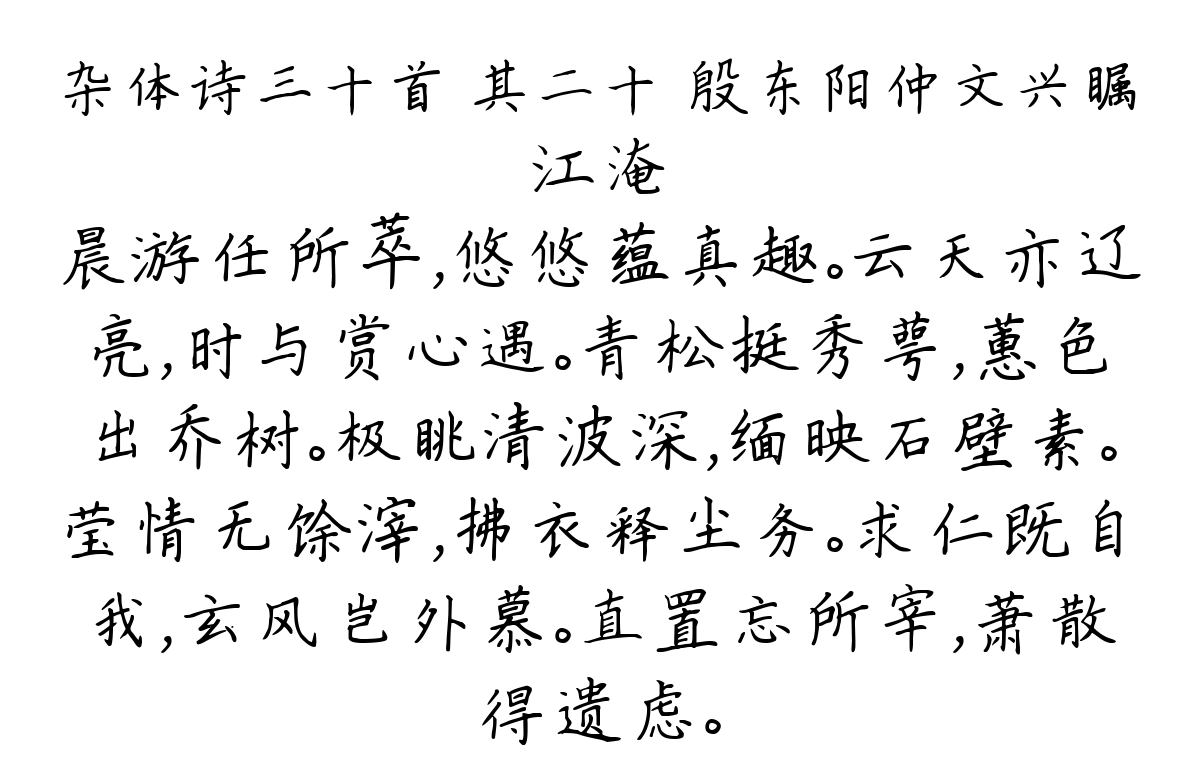 杂体诗三十首 其二十 殷东阳仲文兴瞩
江淹
晨游任所萃,悠悠蕴真趣。云天亦辽
亮,时与赏心遇。青松挺秀萼,蕙色
出乔树。极眺清波深,缅映石壁素。
莹情无馀滓,拂衣释尘务。求仁既自
我,玄风岂外慕。直置忘所宰,萧散
得遗虑。